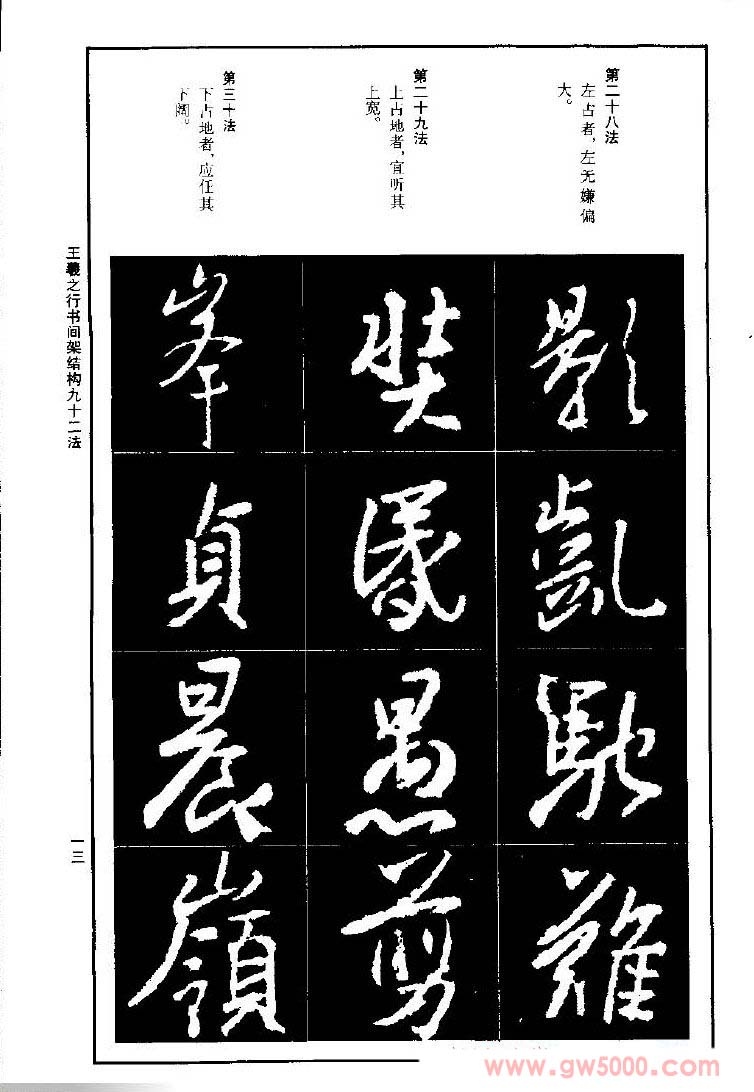 第二十八法
左占者，左无嫌偏
大。
影
凱
馳
難
第二十九法
上占地者，宜听其
上宽。
奘
愚
剪
第三十法
下占地者，应任其
下阔。
峯
貞
晨
嶺
王羲之行书间架结构九十二法
一三
www.gw5000.com